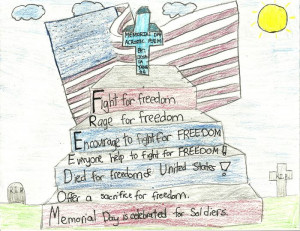 MEMORIAL DAY
ACROSTIC POEM
Fight for freedom
Rage for freedom
Encourage to fight for FREEDOM
Everyone help to fight for FREEDOM!
Died for freedom of United States!
Offer a sacrifice for freedom.
Memorial Day is celebrated for Soldiers.
R.I.P
R.I.P